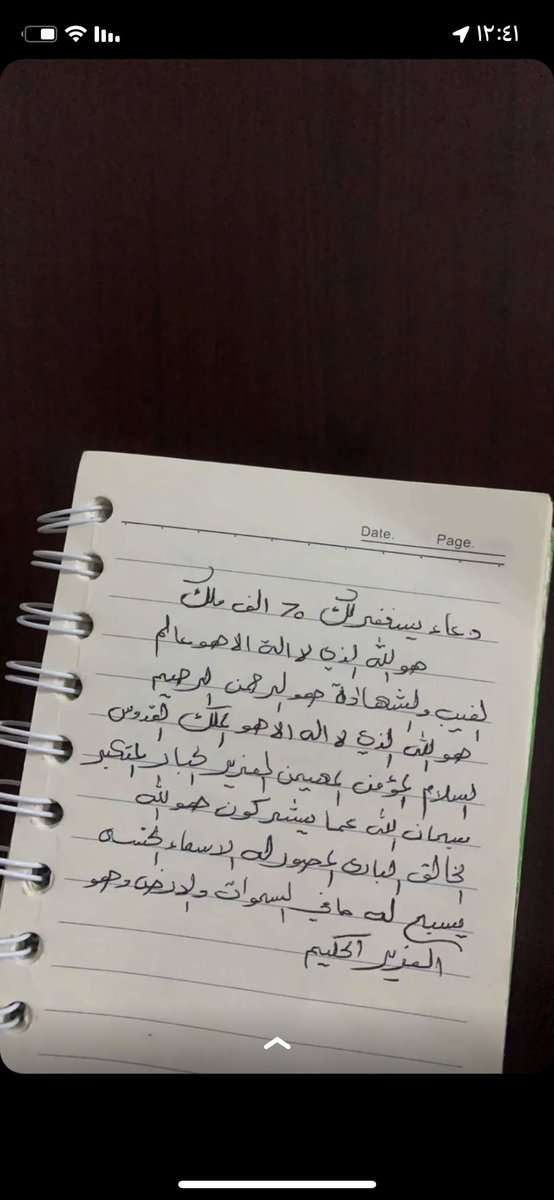 ١٢:٤١
Date. Page.
دعاء يستغفر لك 70 الف ملك
هو الله الذي لا الة الا هو عالم
الغيب والشهادة هو الرحمن الرحيم
هو الله الذي لا اله الا هو الملك القدوس
السلام المؤمن المهيمن العزيز الجبار المتكبر
سبحان الله عما يشركون هو الله
الخالق البارئ المصور له الاسماء الحسنه
يسبح له ما في السموات والارض وهو
العزيز الحكيم